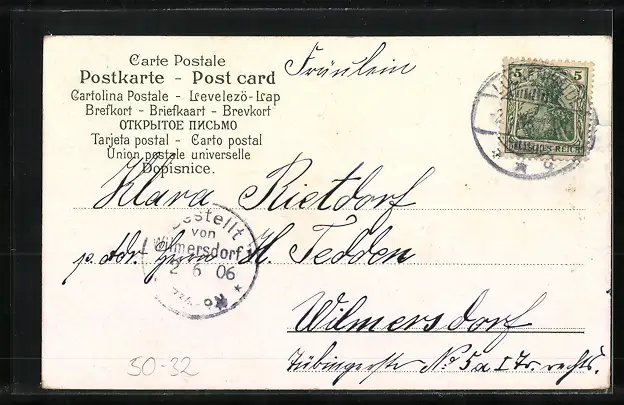 Carte Postale
Postkarte - Post card
Cartolina Postale - Levelezö-Lap
Brefkort - Briefkaart - Brevkort
ОТКРЫТОЕ ПИСЬМО
Tarjeta postal - Carto postal
Union postale universelle
Dopisnice.
Fräulein
5 5
DEUTSCHES REICH
Klara Rietdorf
Bestellt
von
Wilmersdorf
2 6 06
p. Adr. Herrn H. Tedden
Wilmersdorf
Tübingerstr No 5a I Tr. rechts.
50-32